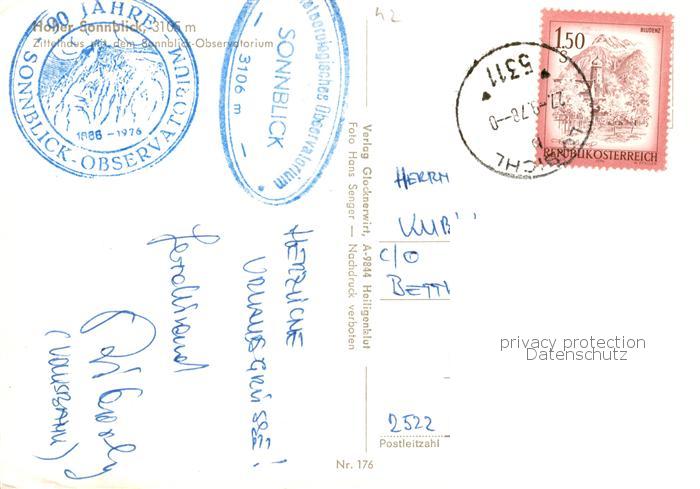 Hoher Sonnblick, 3105 m
Zittelhaus mit dem Sonnblick-Observatorium
90 JAHRE
SONNBLICK-OBSERVATORIUM
1886 - 1976
Meteorologisches Observatorium
SONNBLICK
3106 m
42
1.50
BLUDENZ
REPUBLIK ÖSTERREICH
5311
27.-9.78-0
Verlag Glocknerwirt, A-9844 Heiligenblut
Foto Hans Senger — Nachdruck verboten
HERRN
KUB
C/O
BETTI
2522
Postleitzahl
HERZLICHE
URLAUBSGRÜSSE!
Nr. 176
privacy protection
Datenschutz